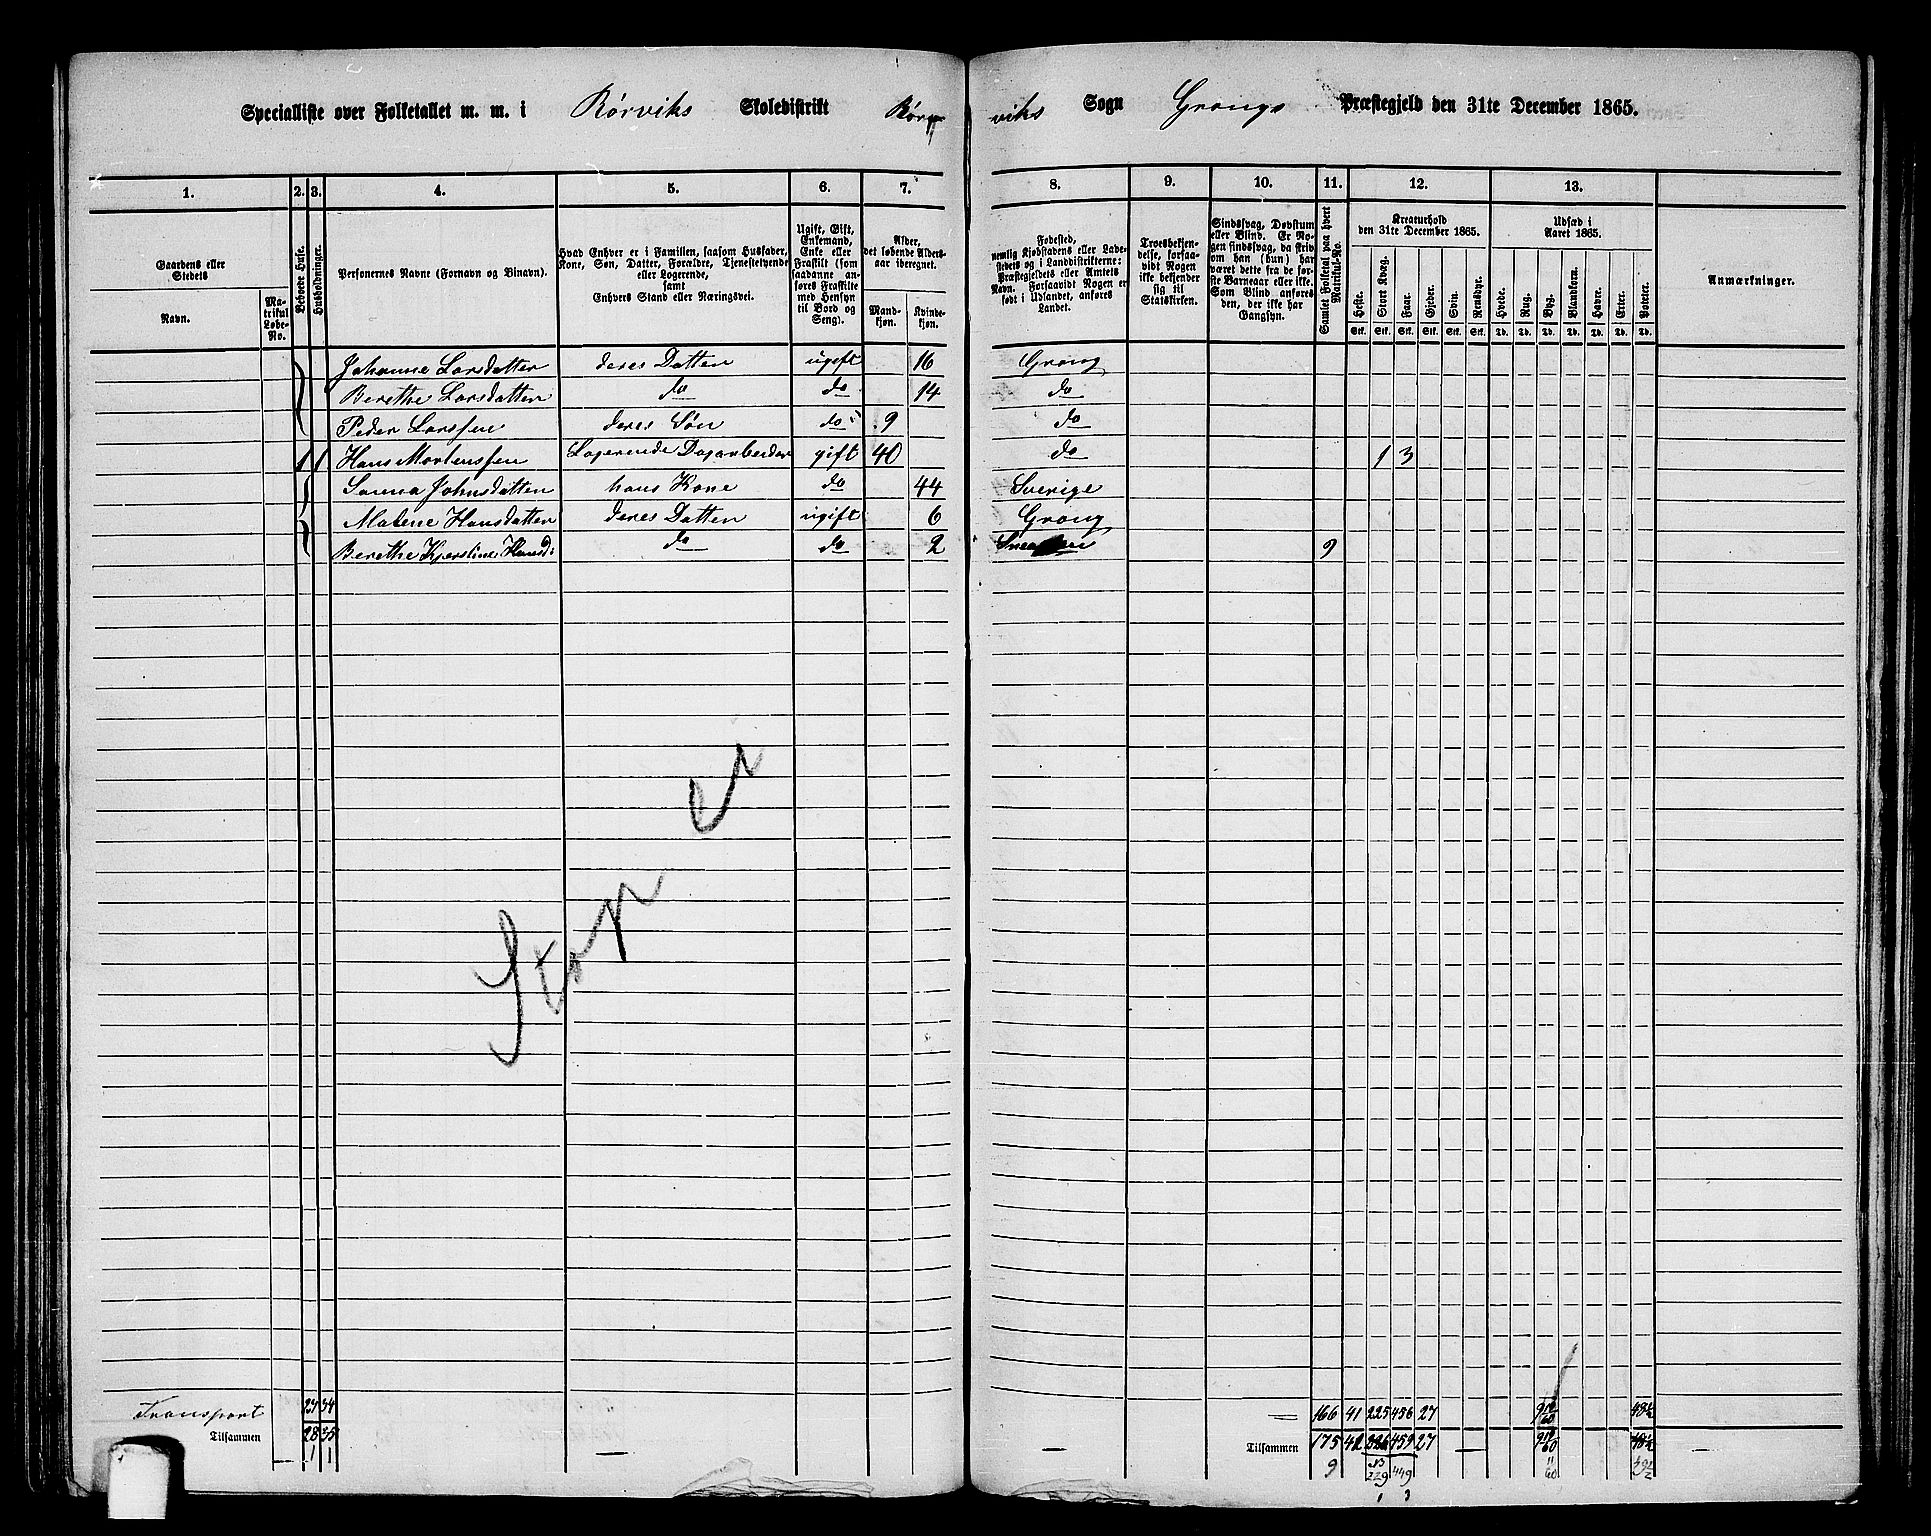 Specialliste over Folketallet m. m. i Rørviks Skoledistrikt Rørviks Sogn Grongs Præstegjeld den 31te December 1865.
1. 2. 3. 4. 5. 6. 7. 8. 9. 10. 11. 12. 13.
Gaardens eller Stedets
Navn.
Matrikul Løbe-No.
Beboede Huse.
Husholdninger.
Personernes Navne (Fornavn og Binavn).
Hvad Enhver er i Familien, saasom Husfader, Kone, Søn, Datter, Forældre, Tjenestetyende eller Logerende, samt Enhvers Stand eller Næringsvei.
Ugift, Gift, Enkemand, Enke eller Fraskilt (som saadanne anføres Fraskilte med Hensyn til Bord og Seng).
Alder, det løbende Aldersaar iberegnet.
Mandkjøn.
Kvindekjøn.
Fødested, nemlig Kjøbstadens eller Ladestedets og i Landdistrikterne: Præstegjeldets eller Amtets Navn. Forsaavidt Nogen er født i Udlandet, anføres Landet.
Troesbekjendelse, forsaavidt Nogen ikke bekjender sig til Statskirken.
Sindssvag, Døvstum eller Blind. Er Nogen sindssvag, da skrives om han (hun) har været dette fra de første Barneaar eller ikke. Som Blind anføres den, der ikke har Gangsyn.
Samlet Folketal paa hvert Matrikul-No.
Kreaturhold den 31te December 1865.
Heste. Stort Kvæg. Faar. Gjeder. Svin. Rensdyr.
Stk. Stk. Stk. Stk. Stk. Stk.
Udsæd i Aaret 1865.
Hvede. Rug. Byg. Blandkorn. Havre. Erter. Poteter.
Td. Td. Td. Td. Td. Td. Td.
Anmærkninger.
Johanne Larsdatter deres Datter ugift 16 Grong
Berethe Larsdatter do do 14 do
Peder Larssen deres Søn do 9 do
1 1 Hans Mortenssen Logerende Dagarbeider gift 40 do 1 3
Sanna Johnsdatter hans Kone do 44 Sverige
Malene Hansdatter deres Datter ugift 6 Grong
Berethe Kjerstine Hansd: do do 2 9
Transport 27 34 166 41 225 456 27
Tilsammen 28 35 Tilsammen 175 41 226 459 27
1 1 9 229 449
1 3